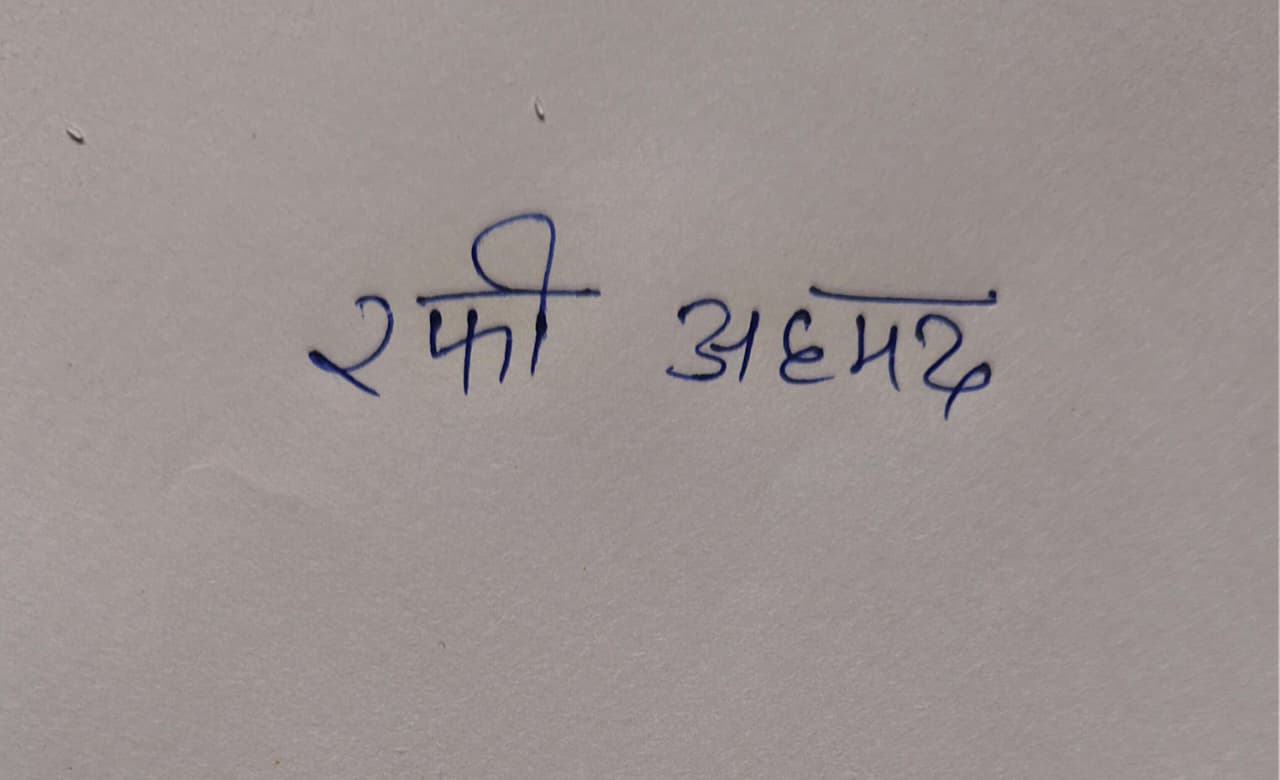 रफी अहमद